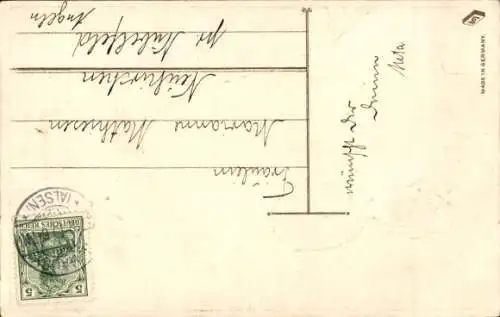 Fräulein
Marianne Mathiesen
Neukirchen
pr Kübelfeld
Angeln
wünscht Dir
Deine
Meta.
DEUTSCHES REICH
5 5
(ALSEN)
MADE IN GERMANY.